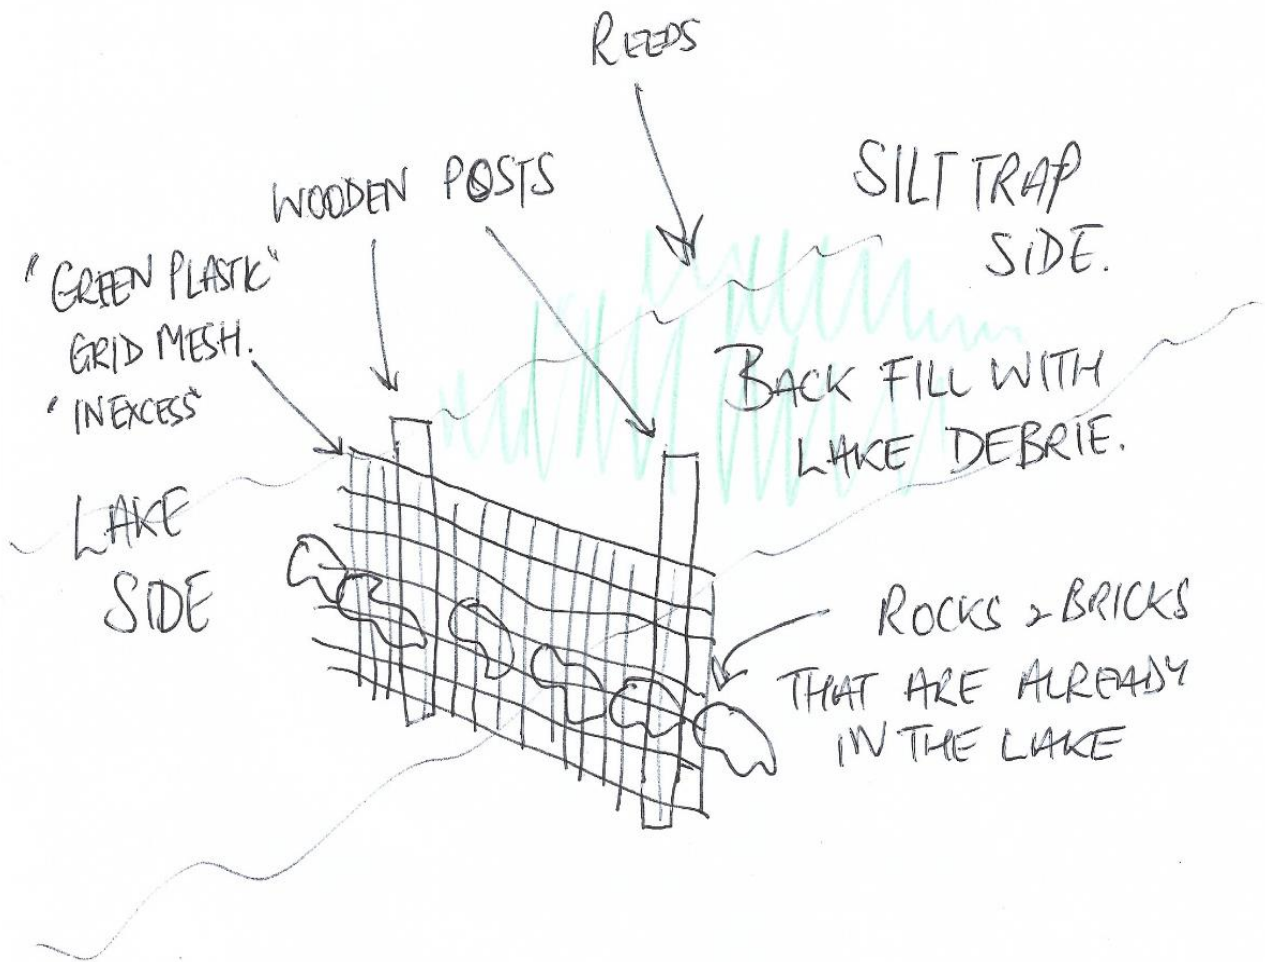 REEDS
WOODEN POSTS
SILT TRAP
SIDE.
"GREEN PLASTIC"
GRID MESH.
"IN EXCESS"
BACK FILL WITH
LAKE DEBRIE.
LAKE
SIDE
ROCKS & BRICKS
THAT ARE ALREADY
IN THE LAKE